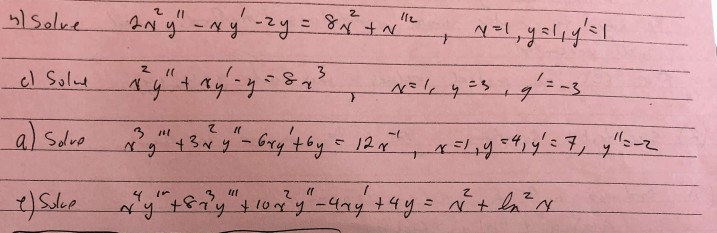 b) Solve 2x²y'' - xy' - 2y = 8x² + x^{1/2}, x=1, y=1, y'=1
c) Solve x²y'' + xy' - y = 8x³, x=1, y=3, y'=-3
a) Solve x³y''' + 3x²y'' - 6xy' + 6y = 12x⁻¹, x=1, y=4, y'=7, y''=-2
e) Solve x⁴y'''' + 8x³y''' + 10x²y'' - 4xy' + 4y = x² + ln²x